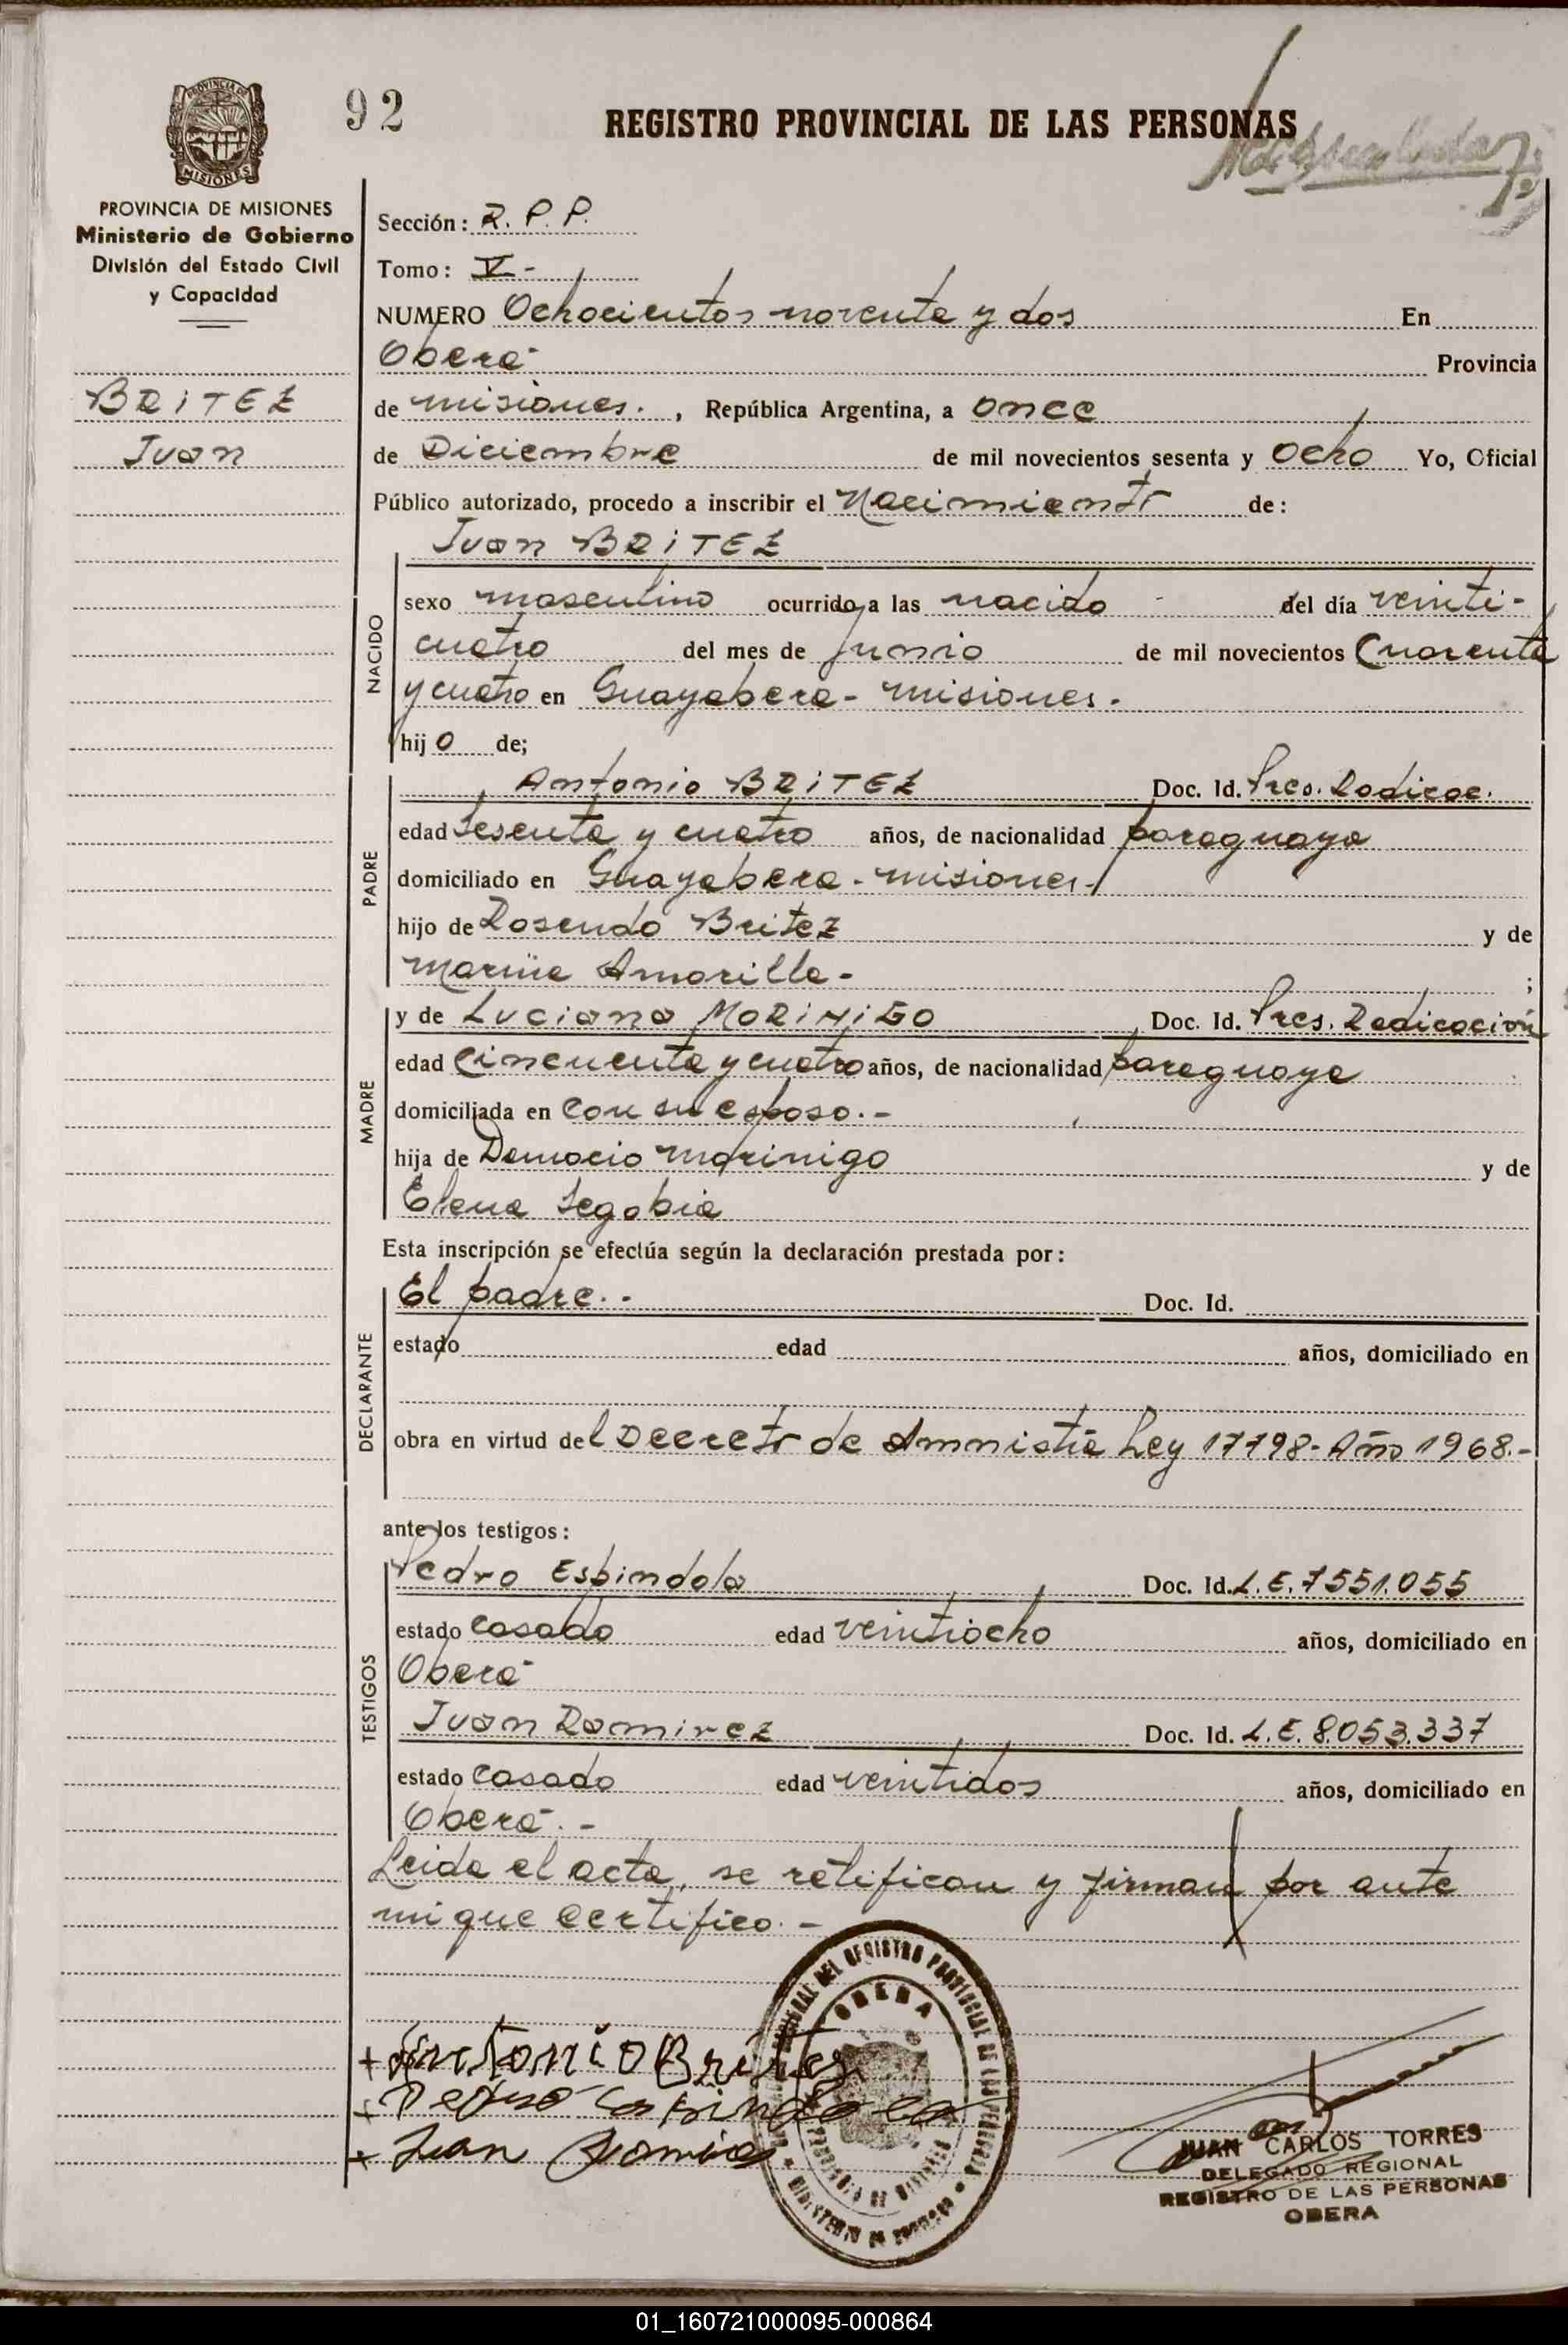 92
REGISTRO PROVINCIAL DE LAS PERSONAS
PROVINCIA DE
MISIONES
PROVINCIA DE MISIONES
Ministerio de Gobierno
División del Estado Civil
y Capacidad
BRITEZ
Juan
Sección: R. P. P.
Tomo: V-
NUMERO Ochocientos noventa y dos En
Oberá Provincia
de misiones. , República Argentina, a once
de Diciembre de mil novecientos sesenta y Ocho Yo, Oficial
Público autorizado, procedo a inscribir el Nacimiento de:
Juan BRITEZ
NACIDO
sexo masculino ocurrido a las nacido - del día veinti-
cuatro del mes de Junio de mil novecientos Cuarenta
y cuatro en Guayabera - misiones.
hijo de;
PADRE
Antonio BRITEZ Doc. Id. Pres. Radicac.
edad sesenta y cuatro años, de nacionalidad paraguaya
domiciliado en Guayabera - misiones -
hijo de Rosendo Britez y de
Amarilla - ;
MADRE
y de Luciana MORINIGO Doc. Id. Pres. Radicación
edad Cincuenta y cuatro años, de nacionalidad paraguaya
domiciliada en con su esposo. -
hija de morinigo y de
Elena Segobia
Esta inscripción se efectúa según la declaración prestada por:
DECLARANTE
El padre. - Doc. Id.
estado edad años, domiciliado en
obra en virtud del Decreto de Amnistía Ley 17798 - Año 1968. -
ante los testigos:
TESTIGOS
Pedro Espindola Doc. Id. L. E. 7551.055
estado casado edad veintiocho años, domiciliado en
Oberá
Juan Ramirez Doc. Id. L. E. 8.053.337
estado casado edad veintidos años, domiciliado en
Oberá. -
Leida el acta, se ratifican y firman por ante
mi que certifico. -
DEL REGISTRO PROVINCIAL DE LAS PERSONAS
OBERA
PROVINCIA DE MISIONES
MINISTERIO DE GOBIERNO
+ Antonio Britez
+ Pedro Espindola
+ Juan Ramirez
JUAN CARLOS TORRES
DELEGADO REGIONAL
REGISTRO DE LAS PERSONAS
OBERA
01_160721000095-000864